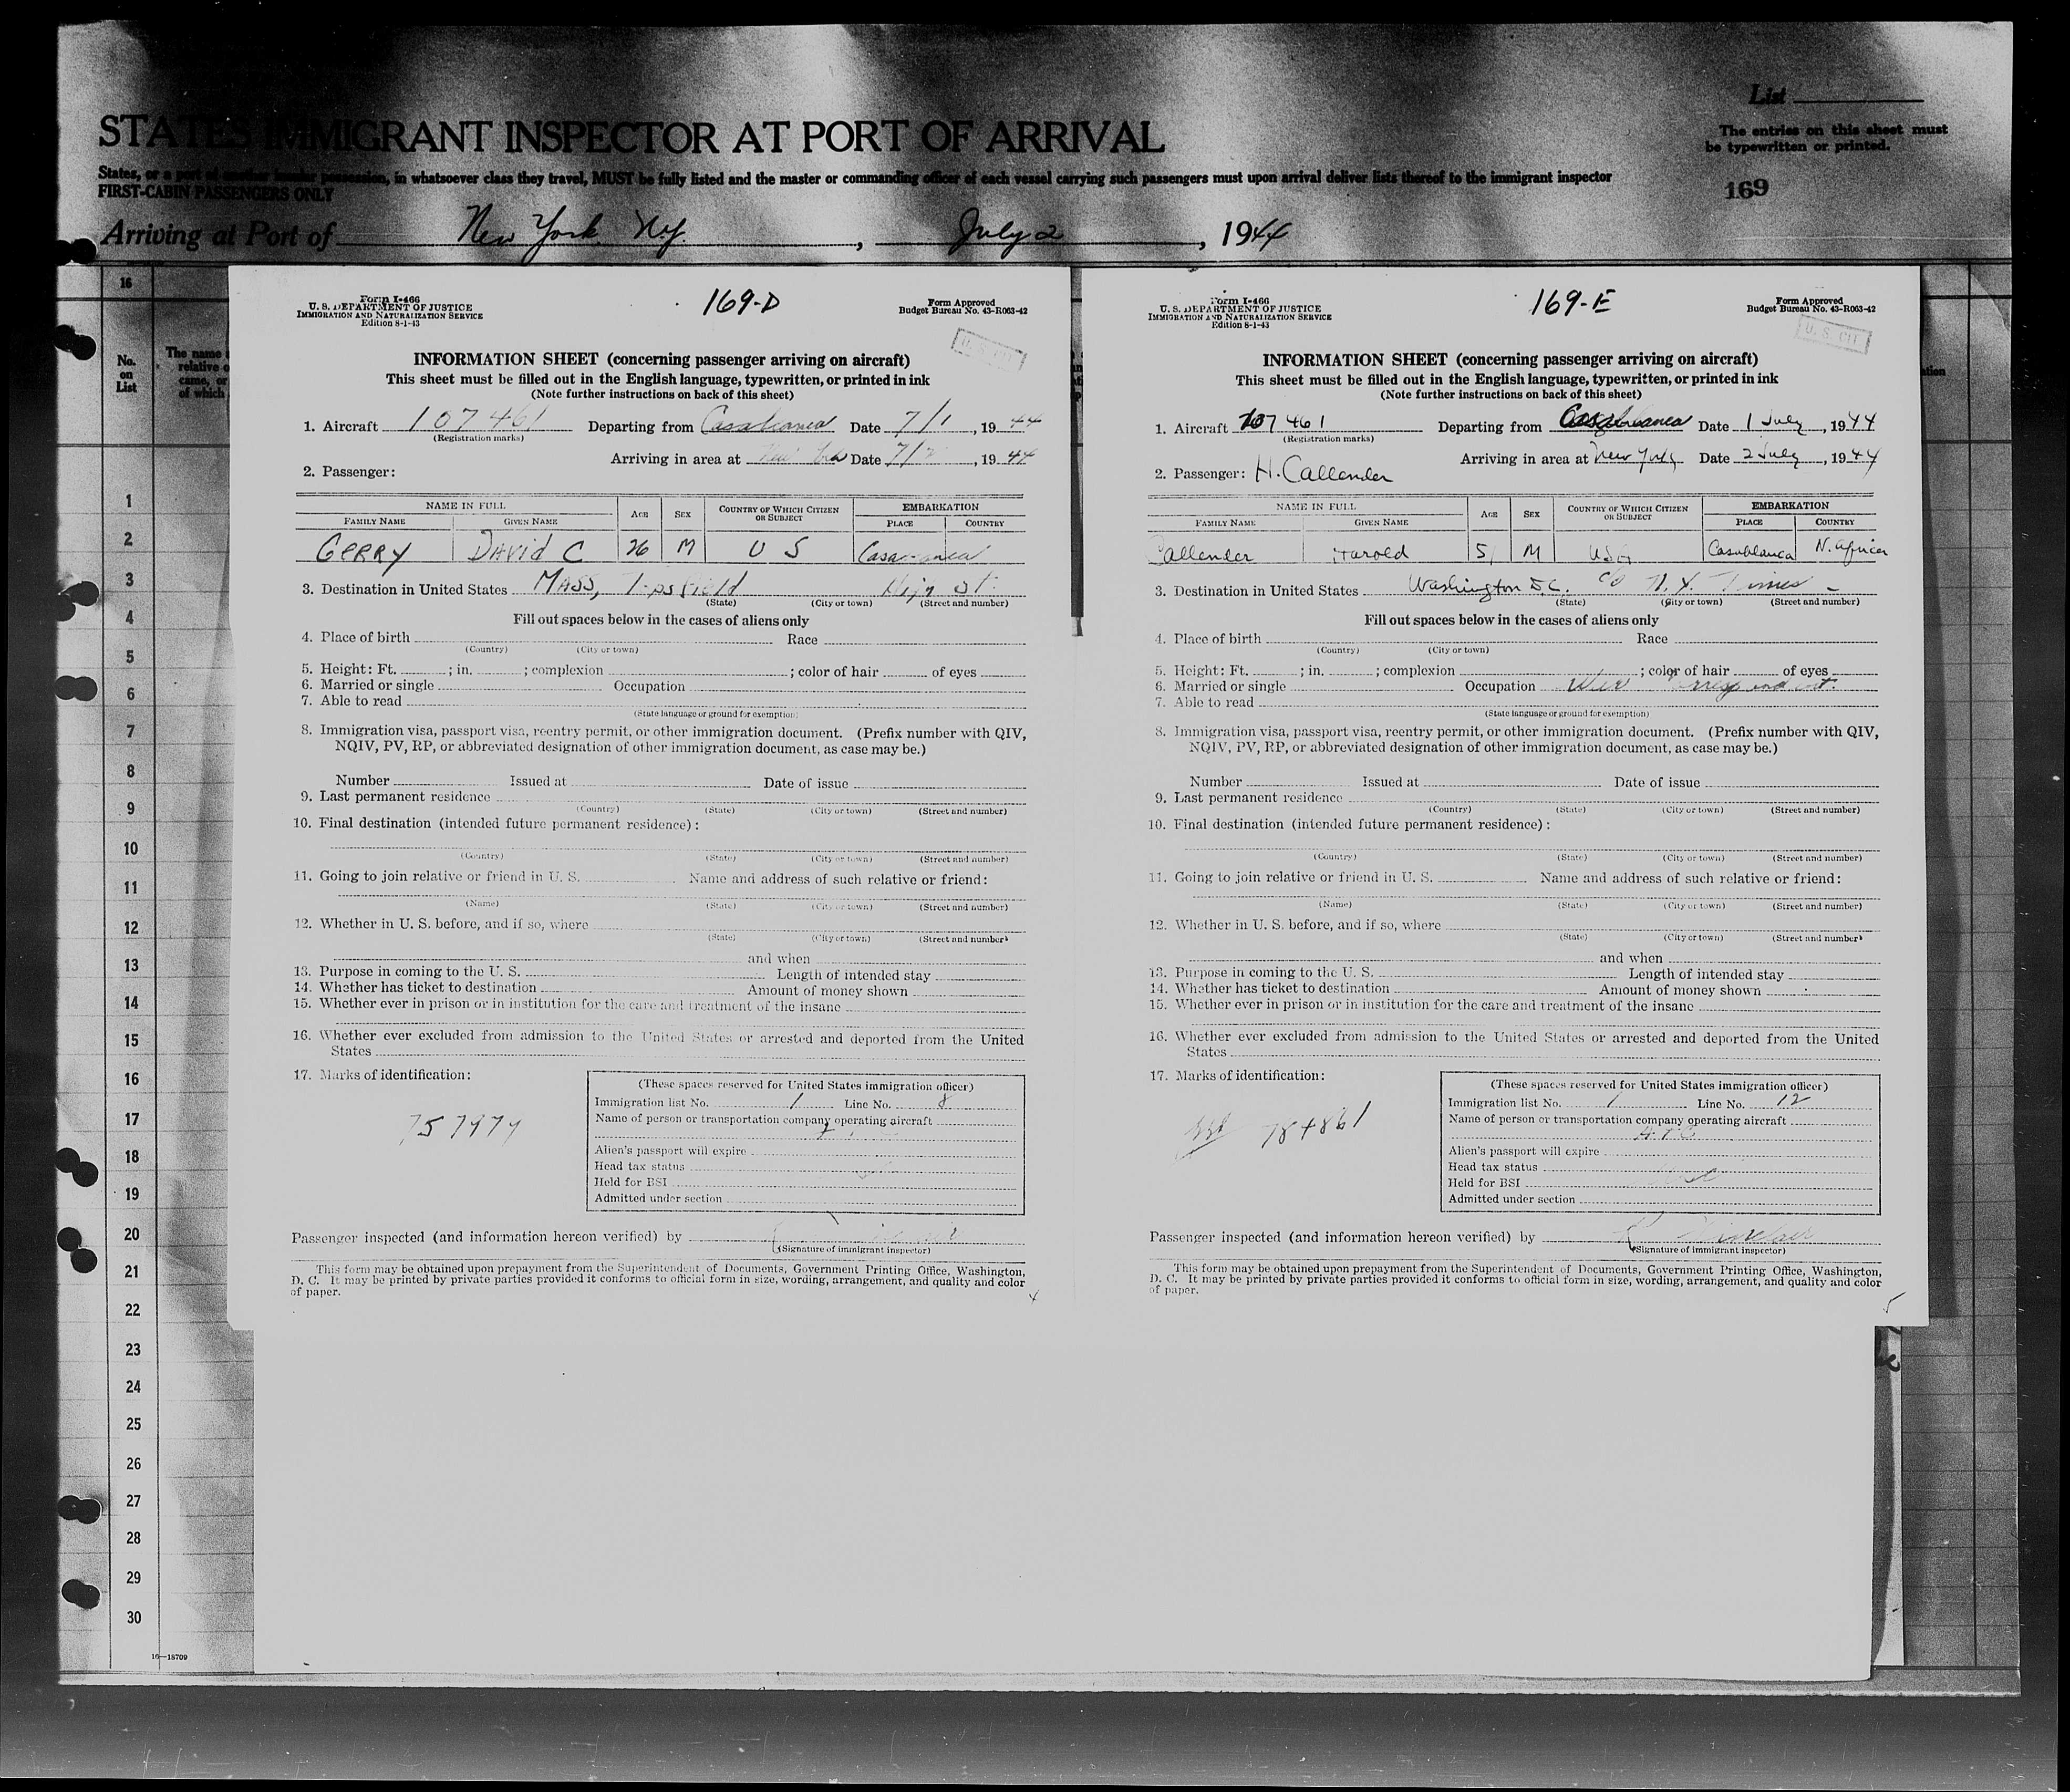 List
STATES IMMIGRANT INSPECTOR AT PORT OF ARRIVAL
The entries on this sheet must
be typewritten or printed.
States, or a port of another insular possession, in whatsoever class they travel, MUST be fully listed and the master or commanding officer of each vessel carrying such passengers must upon arrival deliver lists thereof to the immigrant inspector
FIRST-CABIN PASSENGERS ONLY
169
Arriving at Port of New York N.Y., July 2, 1944
16
No.
on
List
The name
relative o
came, or
of which
1
2
3
4
5
6
7
8
9
10
11
12
13
14
15
16
17
18
19
20
21
22
23
24
25
26
27
28
29
30
16—18709
Form I-466
U. S. DEPARTMENT OF JUSTICE
IMMIGRATION AND NATURALIZATION SERVICE
Edition 8-1-43
169-D
Form Approved
Budget Bureau No. 43-R063-42
U. S. CIT
INFORMATION SHEET (concerning passenger arriving on aircraft)
This sheet must be filled out in the English language, typewritten, or printed in ink
(Note further instructions on back of this sheet)
1. Aircraft 107461 Departing from Casablanca Date 7/1, 1944
(Registration marks)
Arriving in area at Date 7/2, 1944
2. Passenger:
NAME IN FULL AGE SEX COUNTRY OF WHICH CITIZEN OR SUBJECT EMBARKATION
FAMILY NAME GIVEN NAME PLACE COUNTRY
GERRY DAVID C 26 M U S Casablanca
3. Destination in United States MASS, Topsfield High St.
(State) (City or town) (Street and number)
Fill out spaces below in the cases of aliens only
4. Place of birth Race
(Country) (City or town)
5. Height: Ft. ; in. ; complexion ; color of hair of eyes
6. Married or single Occupation
7. Able to read
(State language or ground for exemption)
8. Immigration visa, passport visa, reentry permit, or other immigration document. (Prefix number with QIV,
NQIV, PV, RP, or abbreviated designation of other immigration document, as case may be.)
Number Issued at Date of issue
9. Last permanent residence
(Country) (State) (City or town) (Street and number)
10. Final destination (intended future permanent residence):
(Country) (State) (City or town) (Street and number)
11. Going to join relative or friend in U. S. Name and address of such relative or friend:
(Name) (State) (City or town) (Street and number)
12. Whether in U. S. before, and if so, where
(State) (City or town) (Street and number)
and when
13. Purpose in coming to the U. S. Length of intended stay
14. Whether has ticket to destination Amount of money shown
15. Whether ever in prison or in institution for the care and treatment of the insane
16. Whether ever excluded from admission to the United States or arrested and deported from the United
States
17. Marks of identification:
757979
(These spaces reserved for United States immigration officer)
Immigration list No. 1 Line No. 8
Name of person or transportation company operating aircraft
Alien's passport will expire
Head tax status
Held for BSI
Admitted under section
Passenger inspected (and information hereon verified) by
(Signature of immigrant inspector)
This form may be obtained upon prepayment from the Superintendent of Documents, Government Printing Office, Washington,
D. C. It may be printed by private parties provided it conforms to official form in size, wording, arrangement, and quality and color
of paper.
4
Form I-466
U. S. DEPARTMENT OF JUSTICE
IMMIGRATION AND NATURALIZATION SERVICE
Edition 8-1-43
169-E
Form Approved
Budget Bureau No. 43-R063-42
U. S. CIT
INFORMATION SHEET (concerning passenger arriving on aircraft)
This sheet must be filled out in the English language, typewritten, or printed in ink
(Note further instructions on back of this sheet)
1. Aircraft 107461 Departing from Casablanca Date 1 July, 1944
(Registration marks)
Arriving in area at New York Date 2 July, 1944
2. Passenger: H. Callender
NAME IN FULL AGE SEX COUNTRY OF WHICH CITIZEN OR SUBJECT EMBARKATION
FAMILY NAME GIVEN NAME PLACE COUNTRY
Callender Harold 51 M USA Casablanca N. Africa
3. Destination in United States Washington D.C. c/o N.Y. Times
(State) (City or town) (Street and number)
Fill out spaces below in the cases of aliens only
4. Place of birth Race
(Country) (City or town)
5. Height: Ft. ; in. ; complexion ; color of hair of eyes
6. Married or single Occupation War Correspondent
7. Able to read
(State language or ground for exemption)
8. Immigration visa, passport visa, reentry permit, or other immigration document. (Prefix number with QIV,
NQIV, PV, RP, or abbreviated designation of other immigration document, as case may be.)
Number Issued at Date of issue
9. Last permanent residence
(Country) (State) (City or town) (Street and number)
10. Final destination (intended future permanent residence):
(Country) (State) (City or town) (Street and number)
11. Going to join relative or friend in U. S. Name and address of such relative or friend:
(Name) (State) (City or town) (Street and number)
12. Whether in U. S. before, and if so, where
(State) (City or town) (Street and number)
and when
13. Purpose in coming to the U. S. Length of intended stay
14. Whether has ticket to destination Amount of money shown
15. Whether ever in prison or in institution for the care and treatment of the insane
16. Whether ever excluded from admission to the United States or arrested and deported from the United
States
17. Marks of identification:
784861
(These spaces reserved for United States immigration officer)
Immigration list No. 1 Line No. 12
Name of person or transportation company operating aircraft
A.T.C.
Alien's passport will expire
Head tax status
Held for BSI
Admitted under section
Passenger inspected (and information hereon verified) by R Sinclair
(Signature of immigrant inspector)
This form may be obtained upon prepayment from the Superintendent of Documents, Government Printing Office, Washington,
D. C. It may be printed by private parties provided it conforms to official form in size, wording, arrangement, and quality and color
of paper.
5